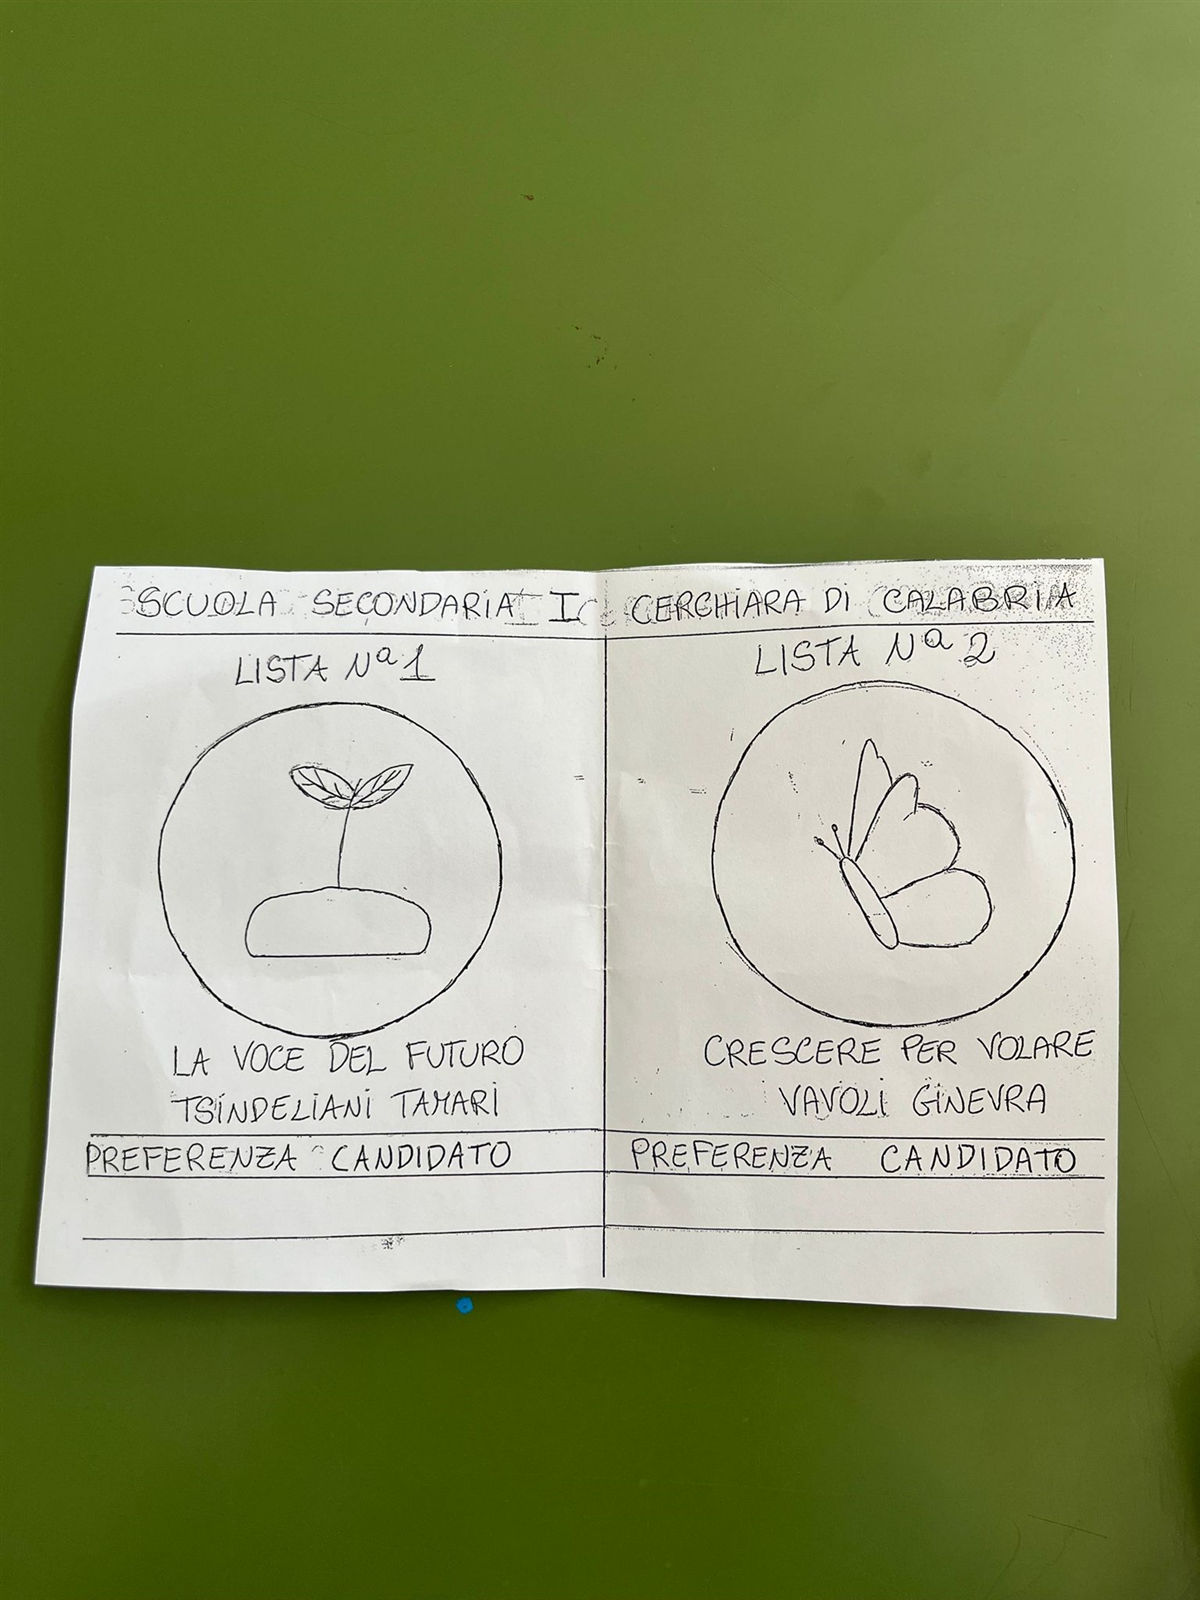 SCUOLA SECONDARIA I CERCHIARA DI CALABRIA
LISTA Nª 1
LA VOCE DEL FUTURO
TSINDELIANI TAMARI
PREFERENZA CANDIDATO
LISTA Nª 2
CRESCERE PER VOLARE
VAVOLI GINEVRA
PREFERENZA CANDIDATO